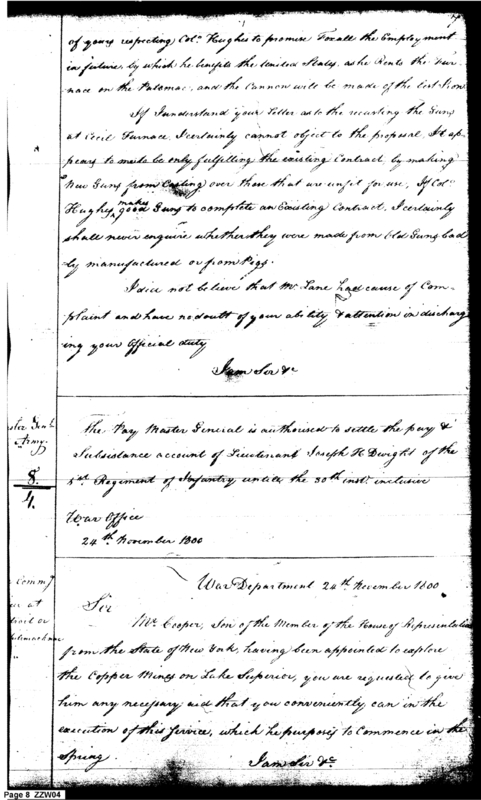 of yours respecting Colo. Hughes to promise For all the Employment
in future, by which he benefits the United States, as he Rents the Fur-
nace on the Patomac, and the Cannon will be made of the best Iron
If I understand your Letter as to the recasting the Guns
at Cecil Furnace, I certainly cannot object to the proposal, It ap-
pears to me to be only fulfilling the existing Contract, by making
New Guns from Casting over those that are unfit for use, If Colo.
Hughes makes good Guns to complete an Existing Contract, I certainly
shall never enquire whether they were made from Old Guns bad
ly manufactured or from Pigs.
I did not believe that Mr. Lane had cause of Com-
plaint and have no doubt of your ability & attention in discharg
ing your Official duty
I am Sir &c
Army.
8
4.
The Pay Master General is authorised to settle the pay &
Subsistance account of Lieutenant Joseph H Dwight of the
1st. Regiment of Infantry until the 30th inst. inclusive
War Office
24th. November 1800
War Department 24th. November 1800.
Sir
Mr. Cooper, Son of the Member of the House of Representatives
from the State of New York, having been appointed to explore
the Copper Mines on Lake Superior, you are requested to give
him any necessary aid that you conveniently can in the
execution of this Service, which he purposes to Commence in the
Spring.
I am Sir &c
Page 8 ZZW04